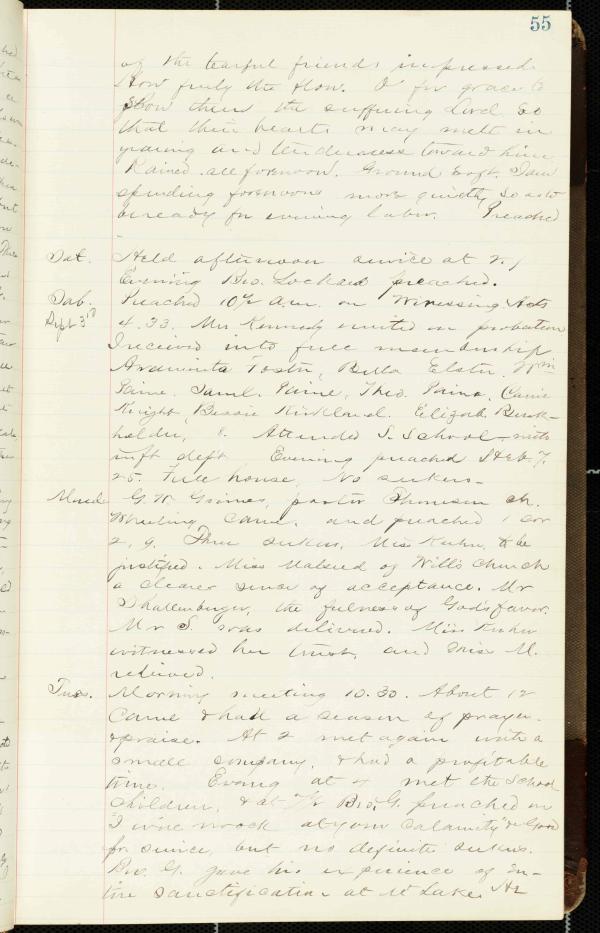 55
of the tearful friends impressed
How freely the flow. O for grace to
show them the suffering Lord so
that their hearts may melt in
yearning and tenderness toward him
Rained all forenoon. Ground soft. I am
spending forenoons more quietly so as to
be ready for evening labor. Preached
Sat. Held afternoon service at 2.
Evening Bro. preached.
Sab. Preached 10½ a.m. on Witnessing Acts
Sept 3rd 4.33. Mrs Kennedy united on probation
I received into full membership
Araminta Foster, Bella Elster, Wm
Paine, Saml. Paine, Theo. Paine, Carrie
Knight, Bessie Kirkland. Elizab. Burk-
holder, 8. Attended S. School
inft dept. Evening preached Heb. 7.
25. Full house, No seekers.
Mond. G. W. Grimes, pastor Thomson ch.
Wheeling came, and preached 1 Cor
2, 9. Three seekers, Miss Kuhn, to be
justified. Miss of Wills Church
a clearer sense of acceptance. Mr
Shallenburger, the fulness of God's favor.
Mr S. was delivered. Miss Kuhn
witnessed her trust, and Miss M.
relieved.
Tues. Morning meeting 10.30. About 12
came & had a season of prayer
& praise. At 2 met again with a
small company, & had a profitable
time. Evening at 4 met the School
children, & at 7½ Bro. G. preached on
"I will mock at your calamity" & Good
for service, but no definite seekers.
Bro. G. gave his experience of En-
tire Sanctification at Mt Lake. He